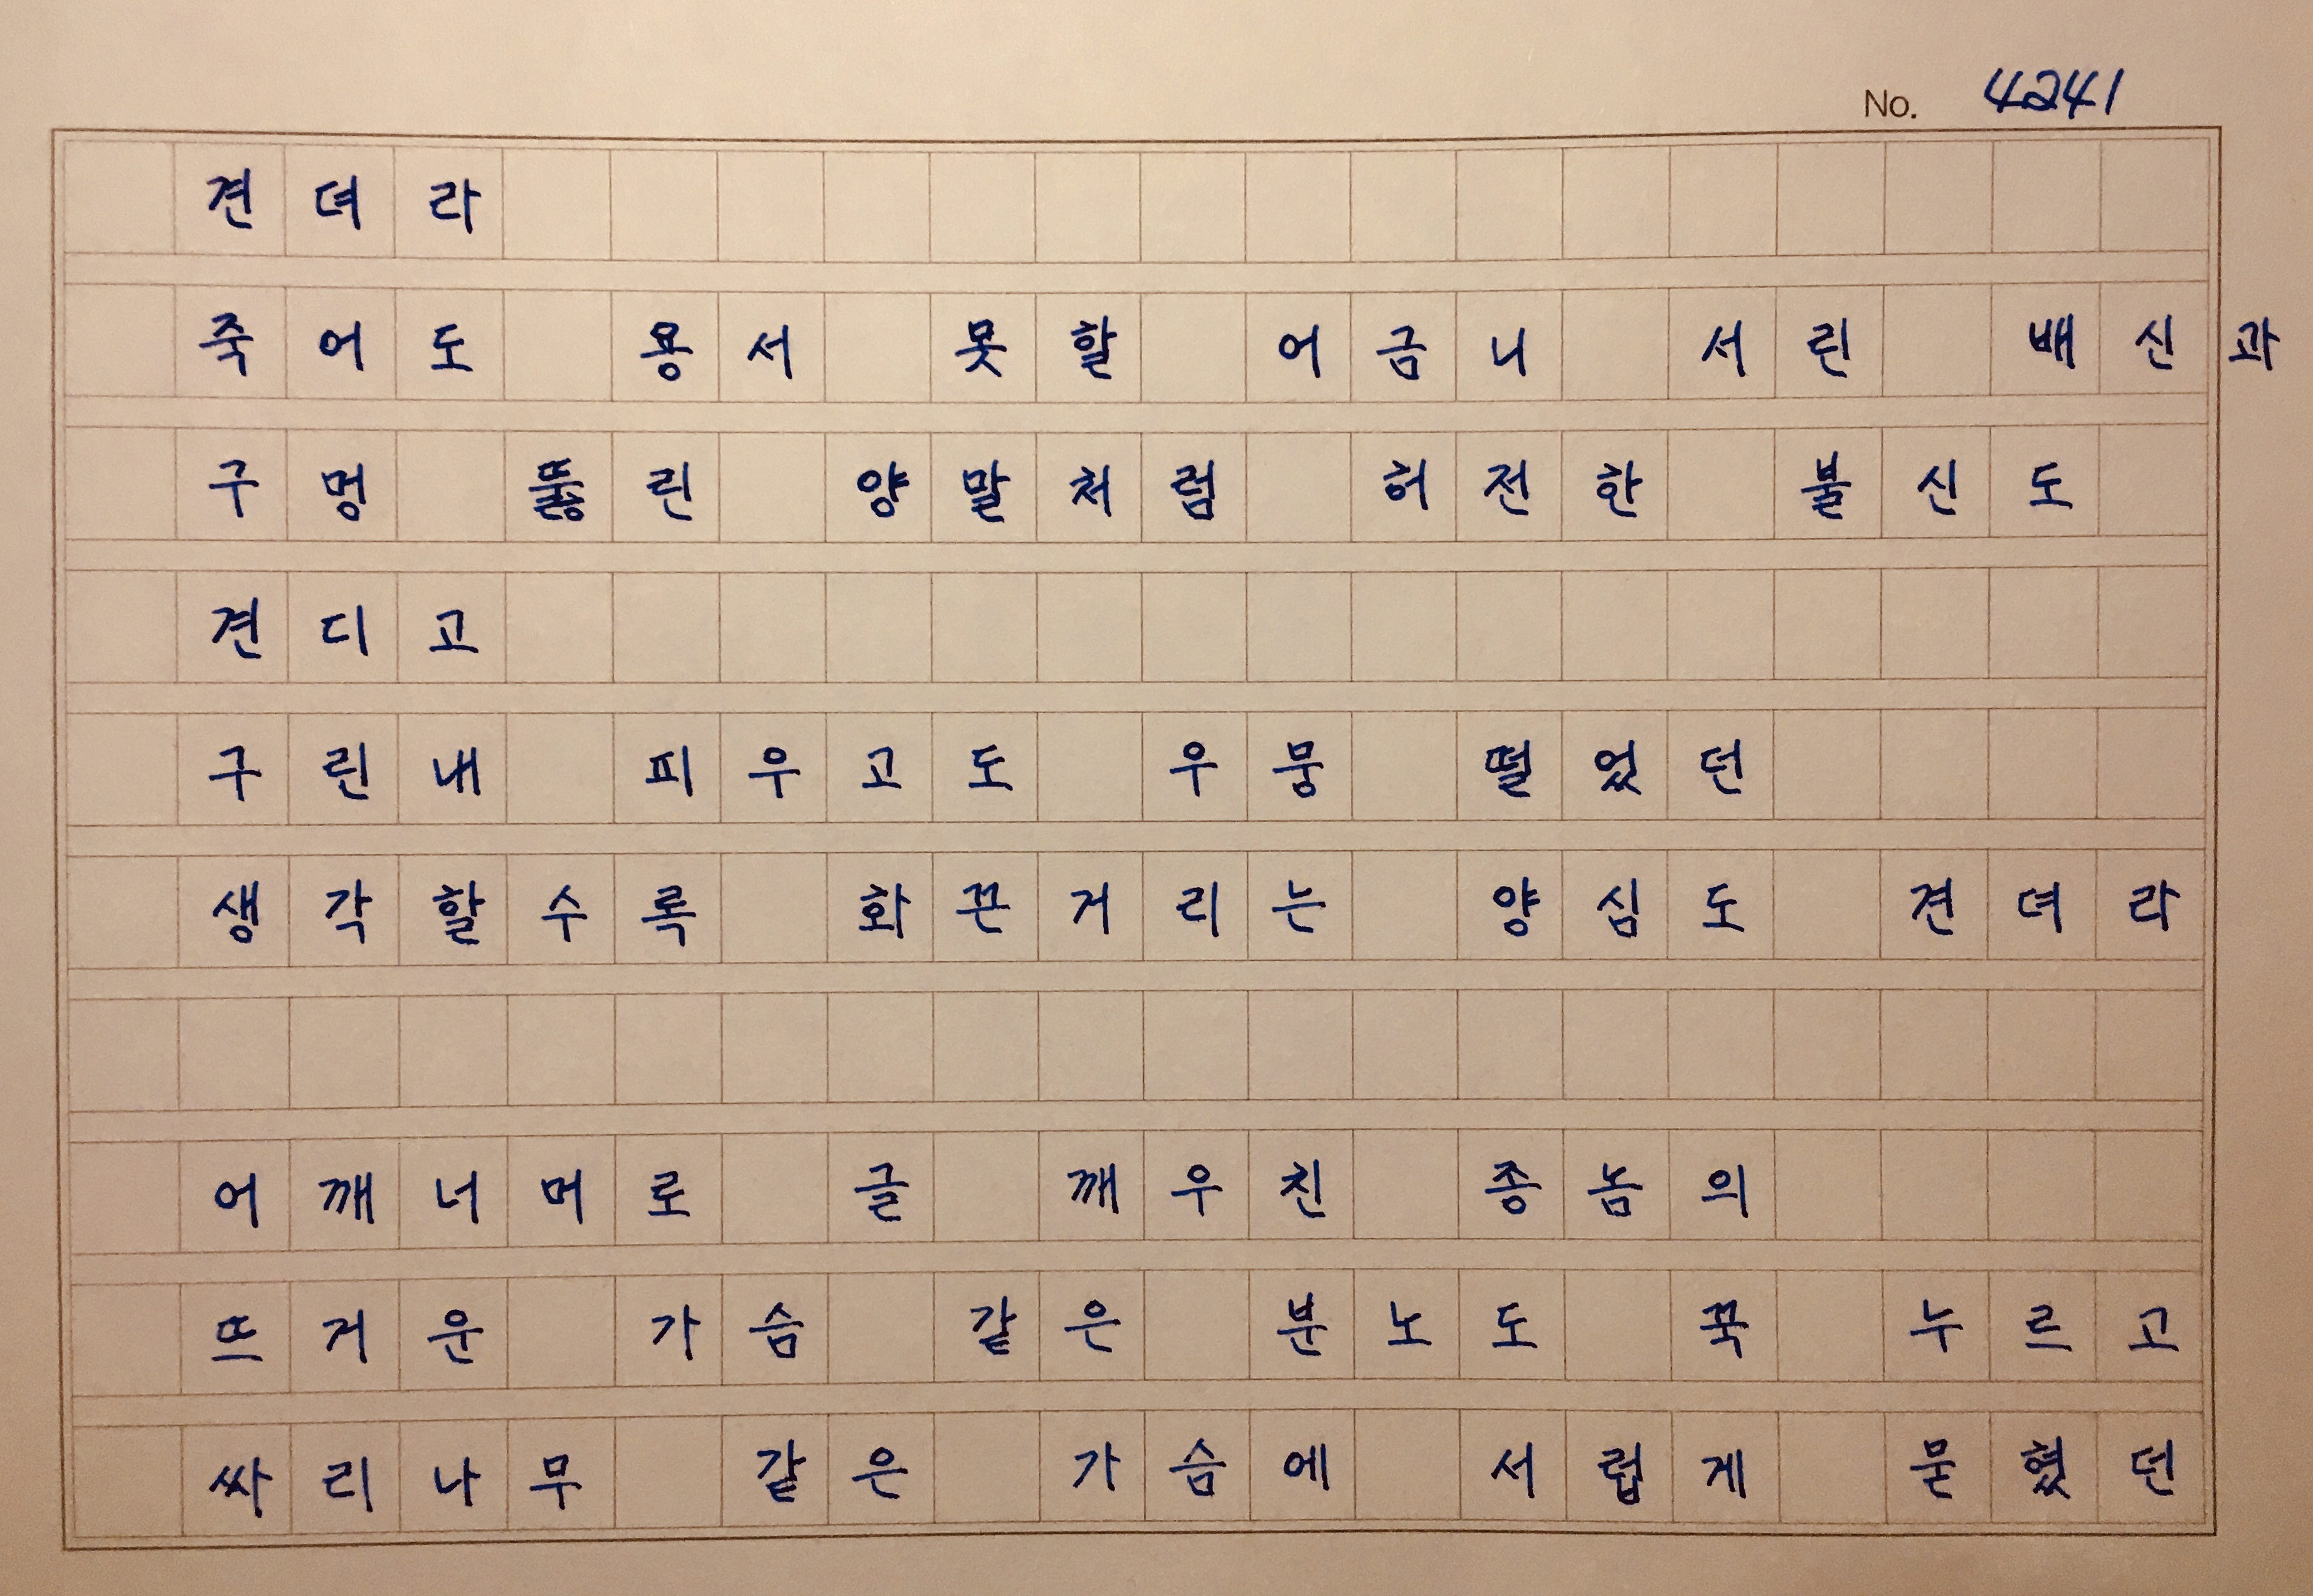 No. 4241
견뎌라
죽어도 용서 못할 어금니 서린 배신과
구멍 뚫린 양말처럼 허전한 불신도
견디고
구린내 피우고도 우뭉 떨었던
생각할수록 화끈거리는 양심도 견뎌라
어깨너머로 글 깨우친 종놈의
뜨거운 가슴 같은 분노도 꾹 누르고
싸리나무 같은 가슴에 서럽게 묻혔던